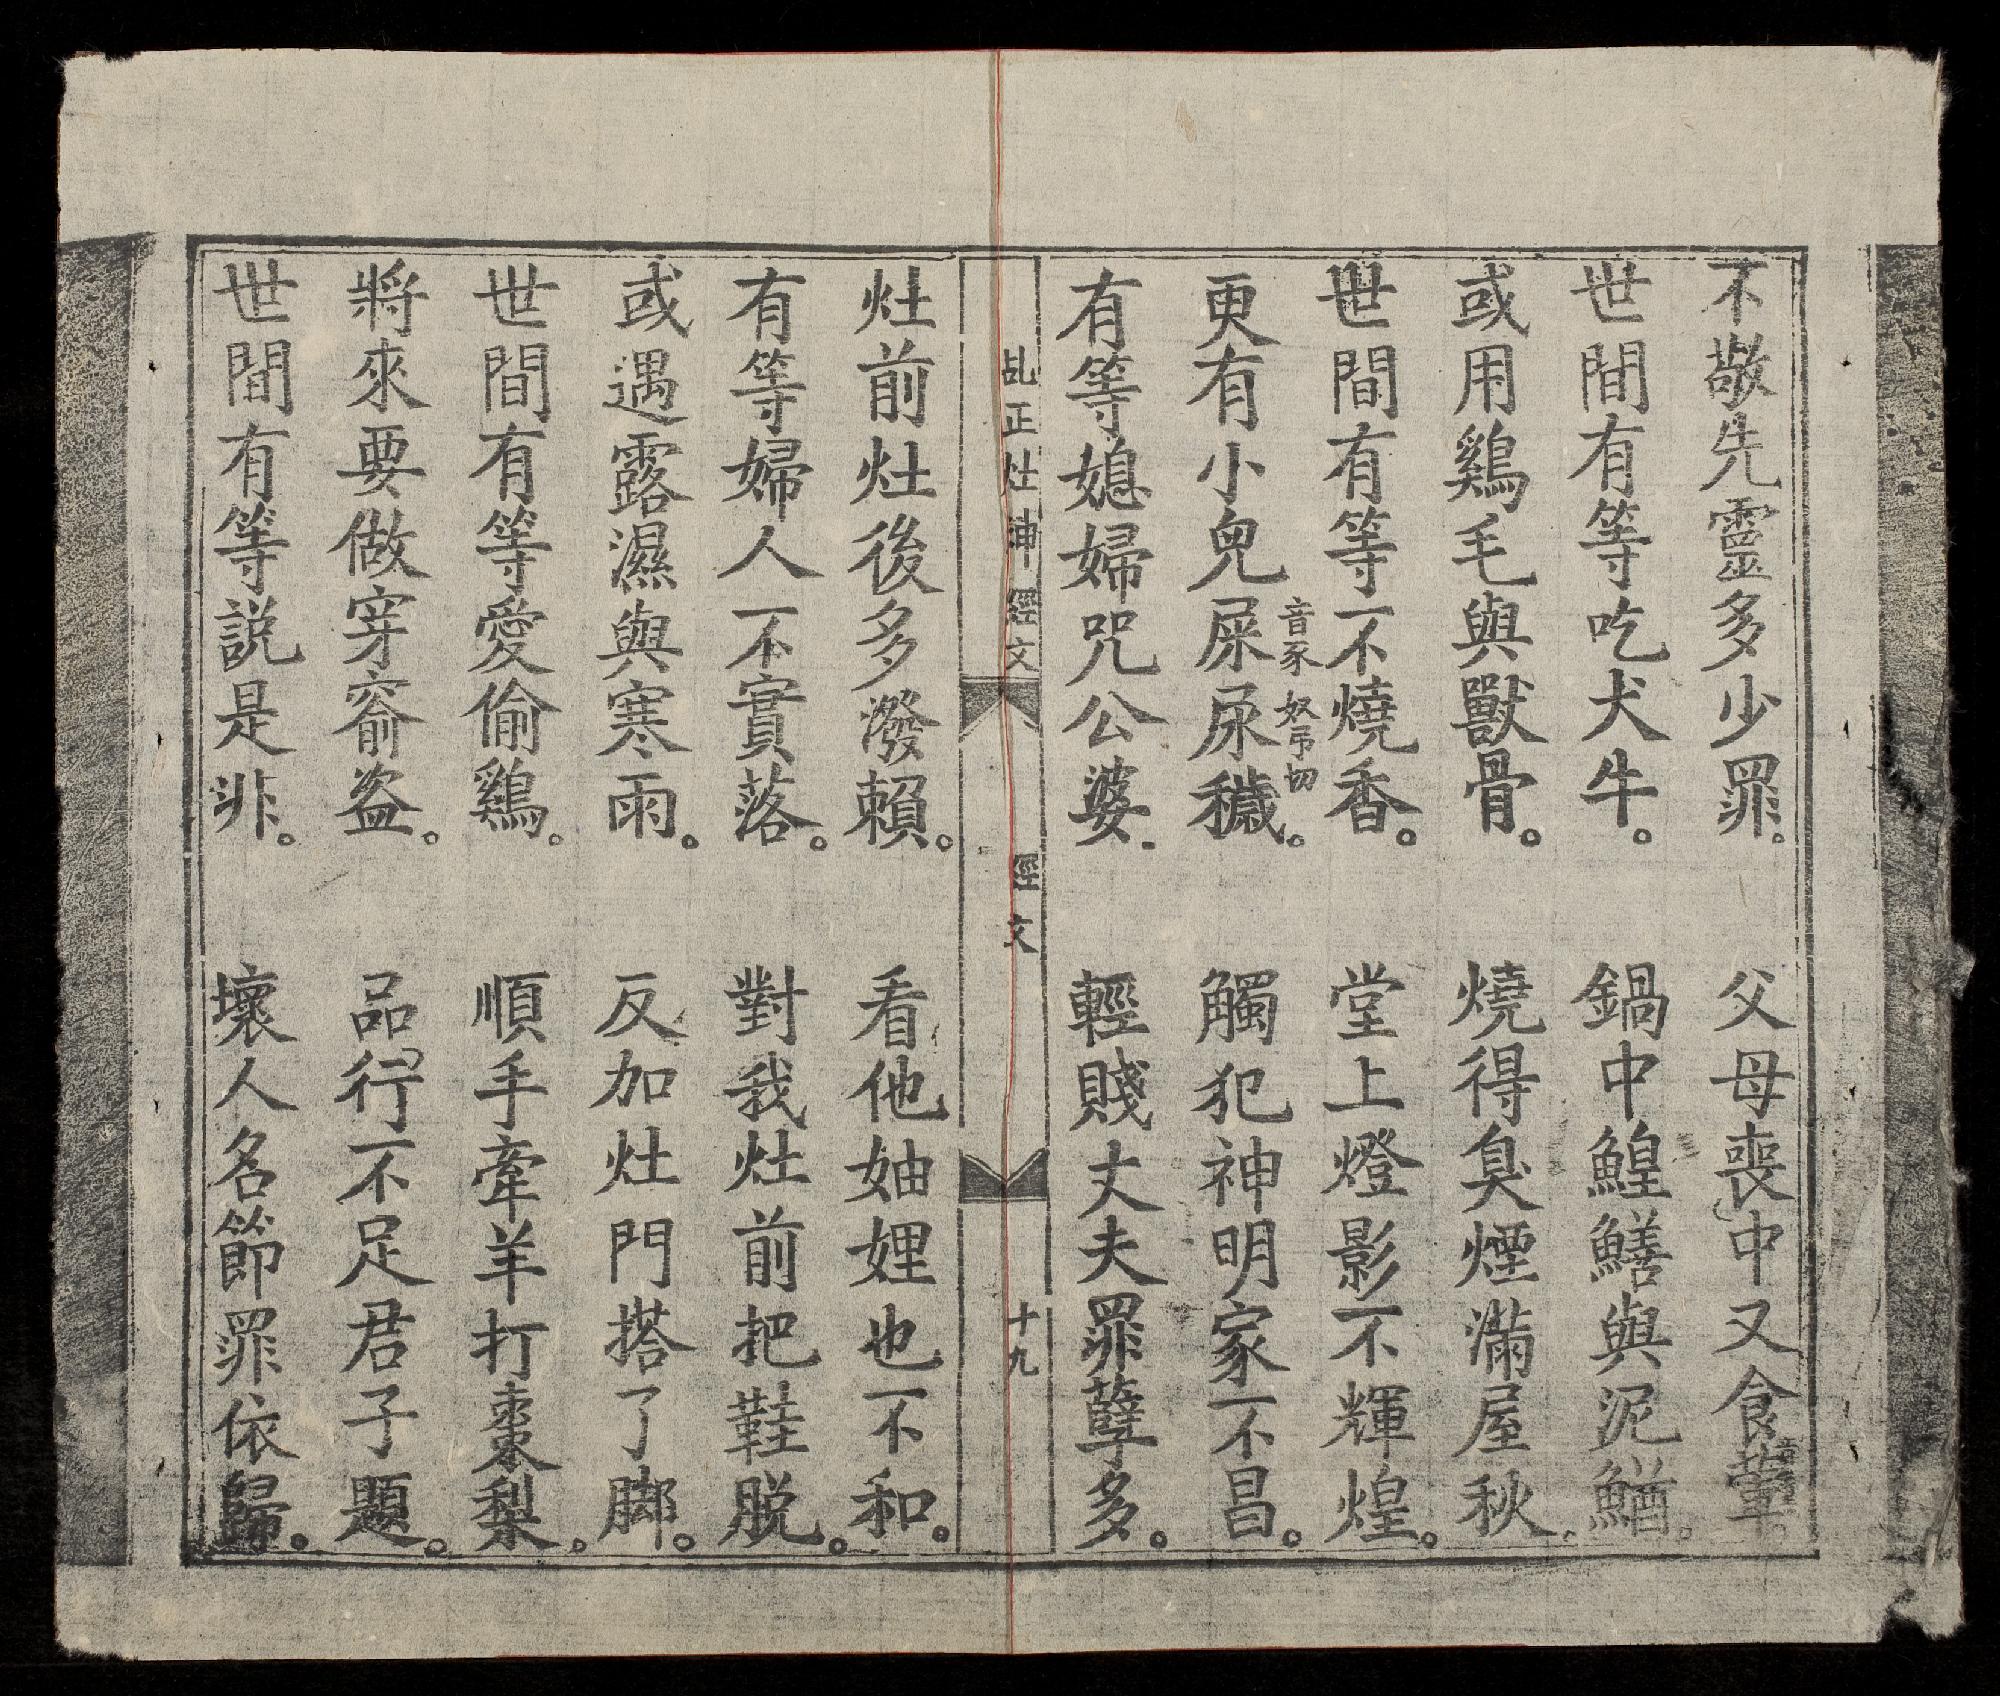 不敬先靈多少罪。父母喪中又食葷。
世間有等吃犬牛。鍋中鰉鱔與泥鰌。
或用鷄毛與獸骨。燒得臭煙滿屋秋。
世間有等不燒香。堂上燈影不輝煌。
更有小兒屎尿穢。觸犯神明家不昌。
音豕 奴弔切
有等媳婦咒公婆。輕賤丈夫罪孽多。
乩正灶神經文 經文 十九
灶前灶後多潑賴。看他妯娌也不和。
有等婦人不實落。對我灶前把鞋脱。
或遇露濕與寒雨。反加灶門搭了脚。
世間有等愛偷鷄。順手牽羊打棗梨。
將來要做穿窬盗。品行不足君子題。
世間有等説是非。壞人名節罪依歸。